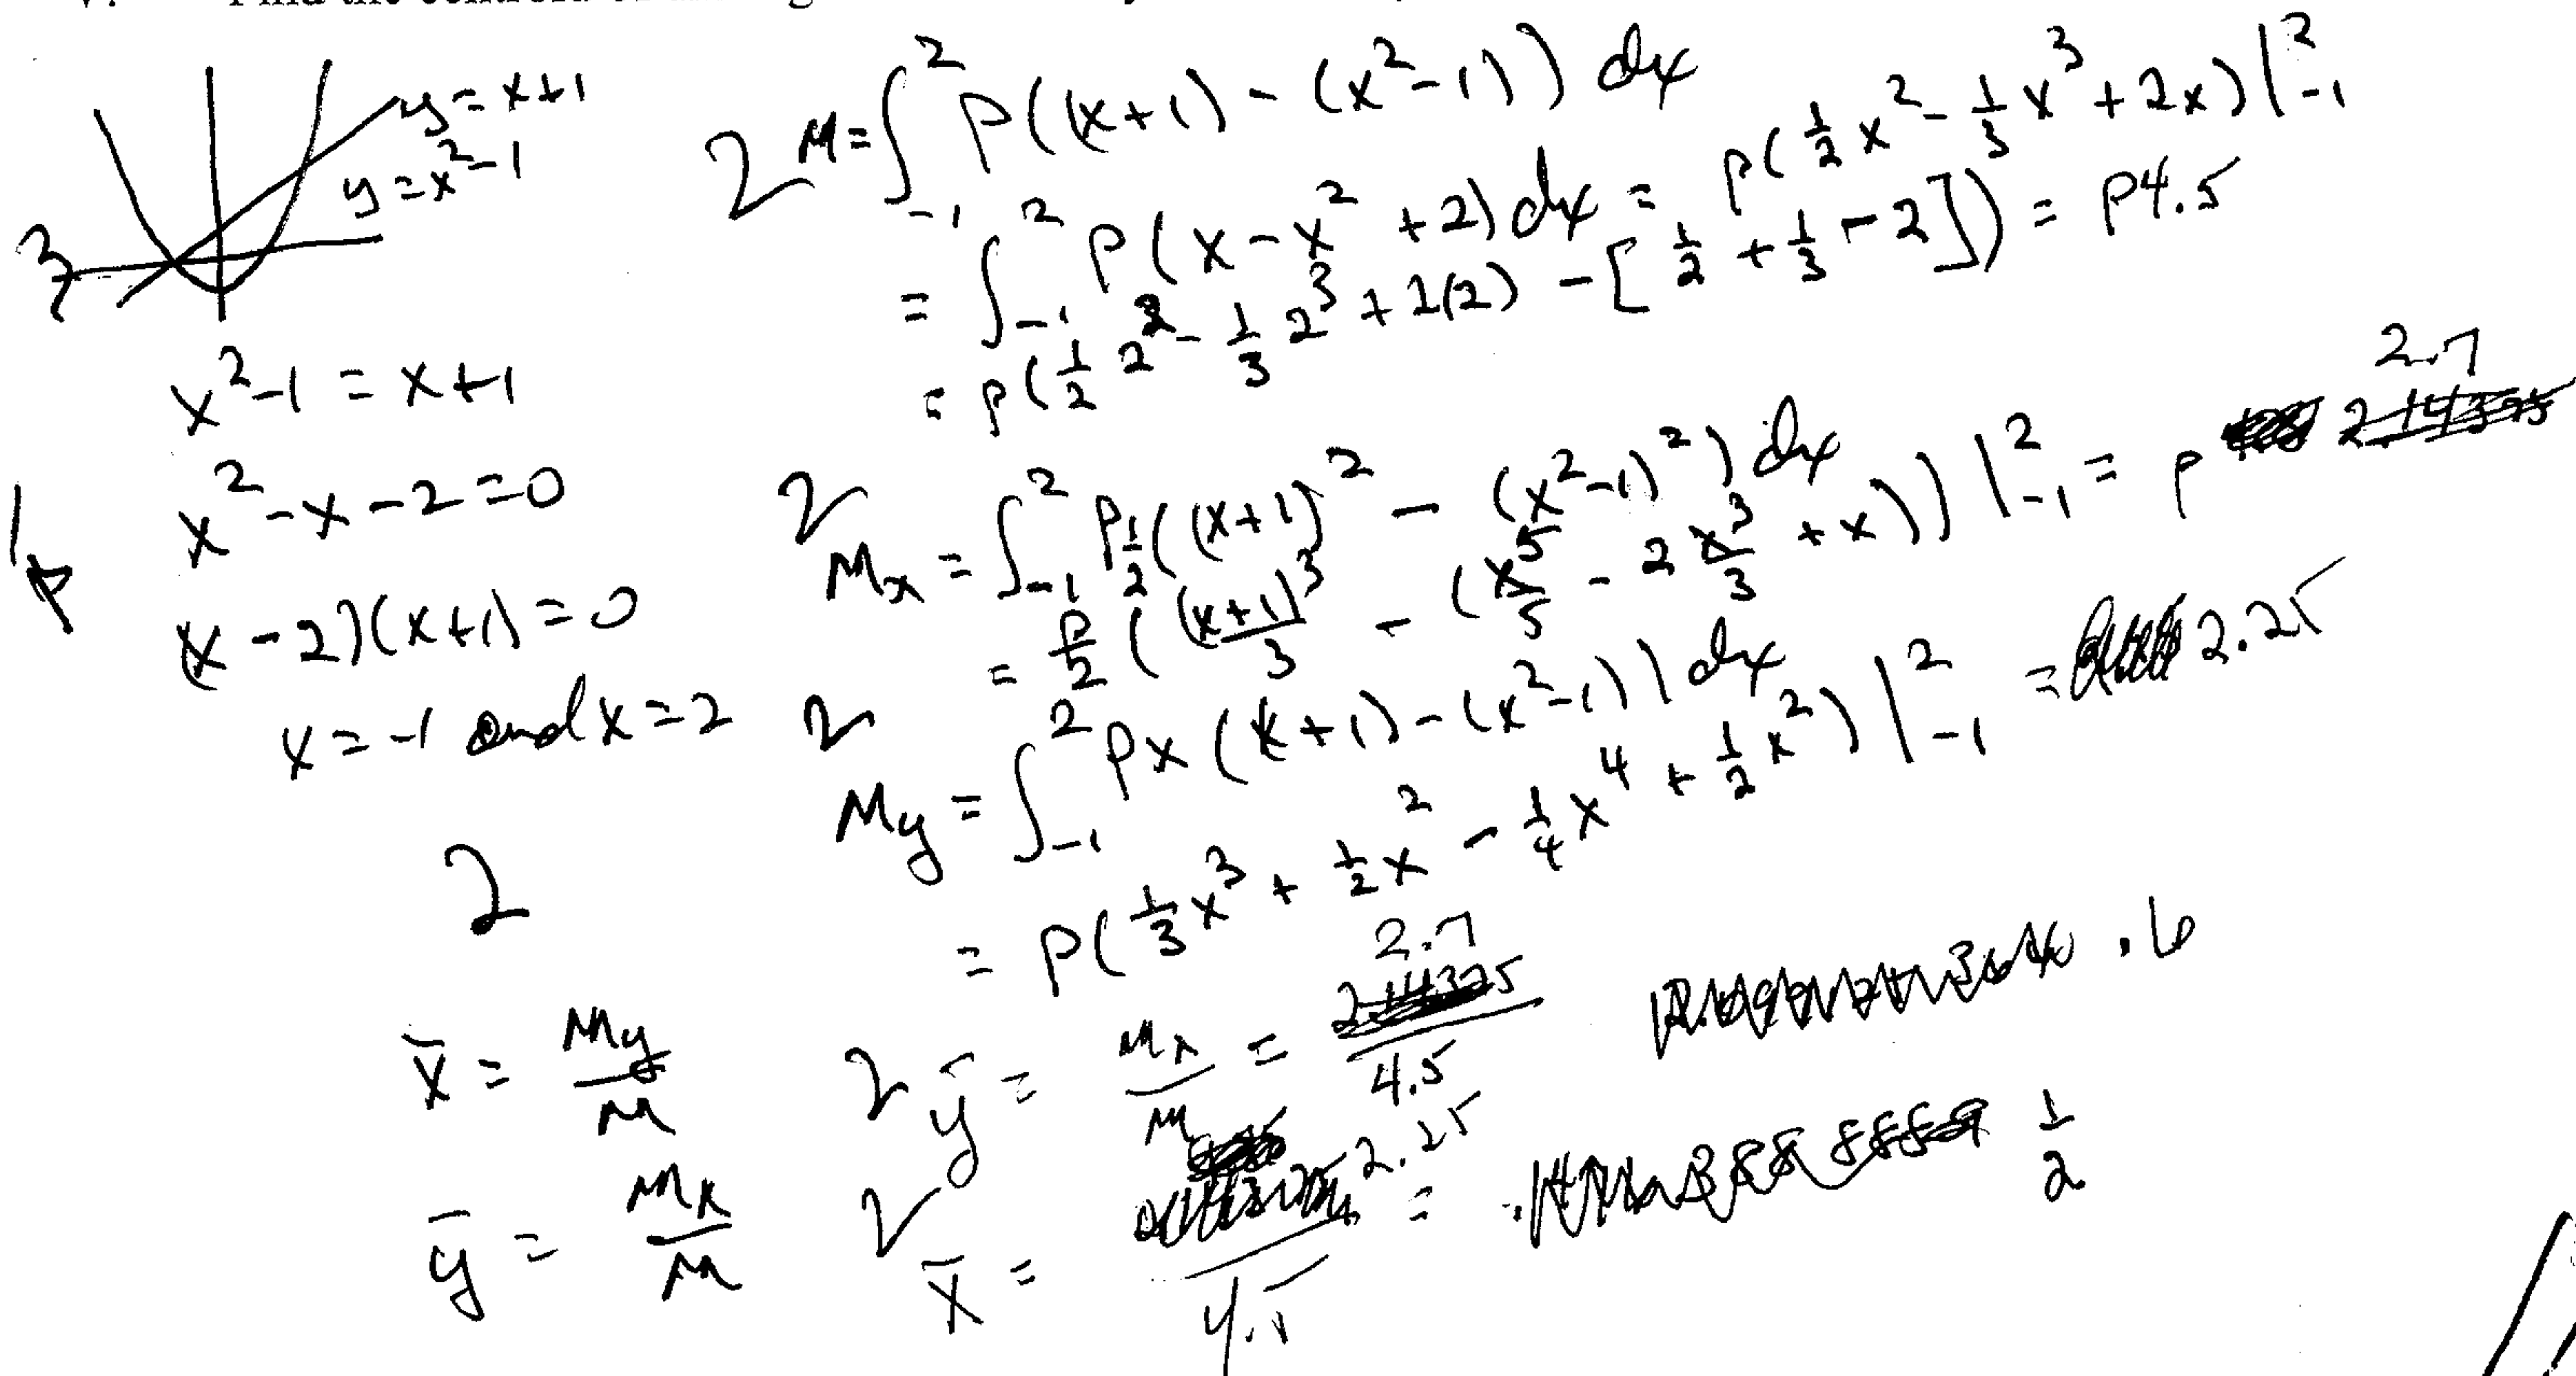 y = x+1
y = x² - 1
3
x² - 1 = x + 1
x² - x - 2 = 0
(x - 2)(x+1) = 0
x = -1 and x = 2
2
x̄ = My/M
ȳ = Mx/M
2 M = ∫_{-1}^{2} ρ((x+1) - (x² - 1)) dx
= ∫_{-1}^{2} ρ(x - x² + 2) dx = ρ(½x² - ⅓x³ + 2x)|_{-1}^{2}
= ρ(½ 2² - ⅓ 2³ + 2(2) - [½ + ⅓ - 2]) = ρ4.5
2 Mx = ∫_{-1}^{2} ρ½((x+1)² - (x² - 1)²) dx
= ρ/2 ((x+1)³/3 - (x⁵/5 - 2x³/3 + x))|_{-1}^{2} = ρ 2.7
2 My = ∫_{-1}^{2} ρx((x+1) - (x² - 1)) dx
= ρ(⅓x³ + ½x² - ¼x⁴ + ½x²)|_{-1}^{2} = 2.25
2 ȳ = Mx/M = 2.7/4.5 .6
2 x̄ = 2.25/4.5 = ½